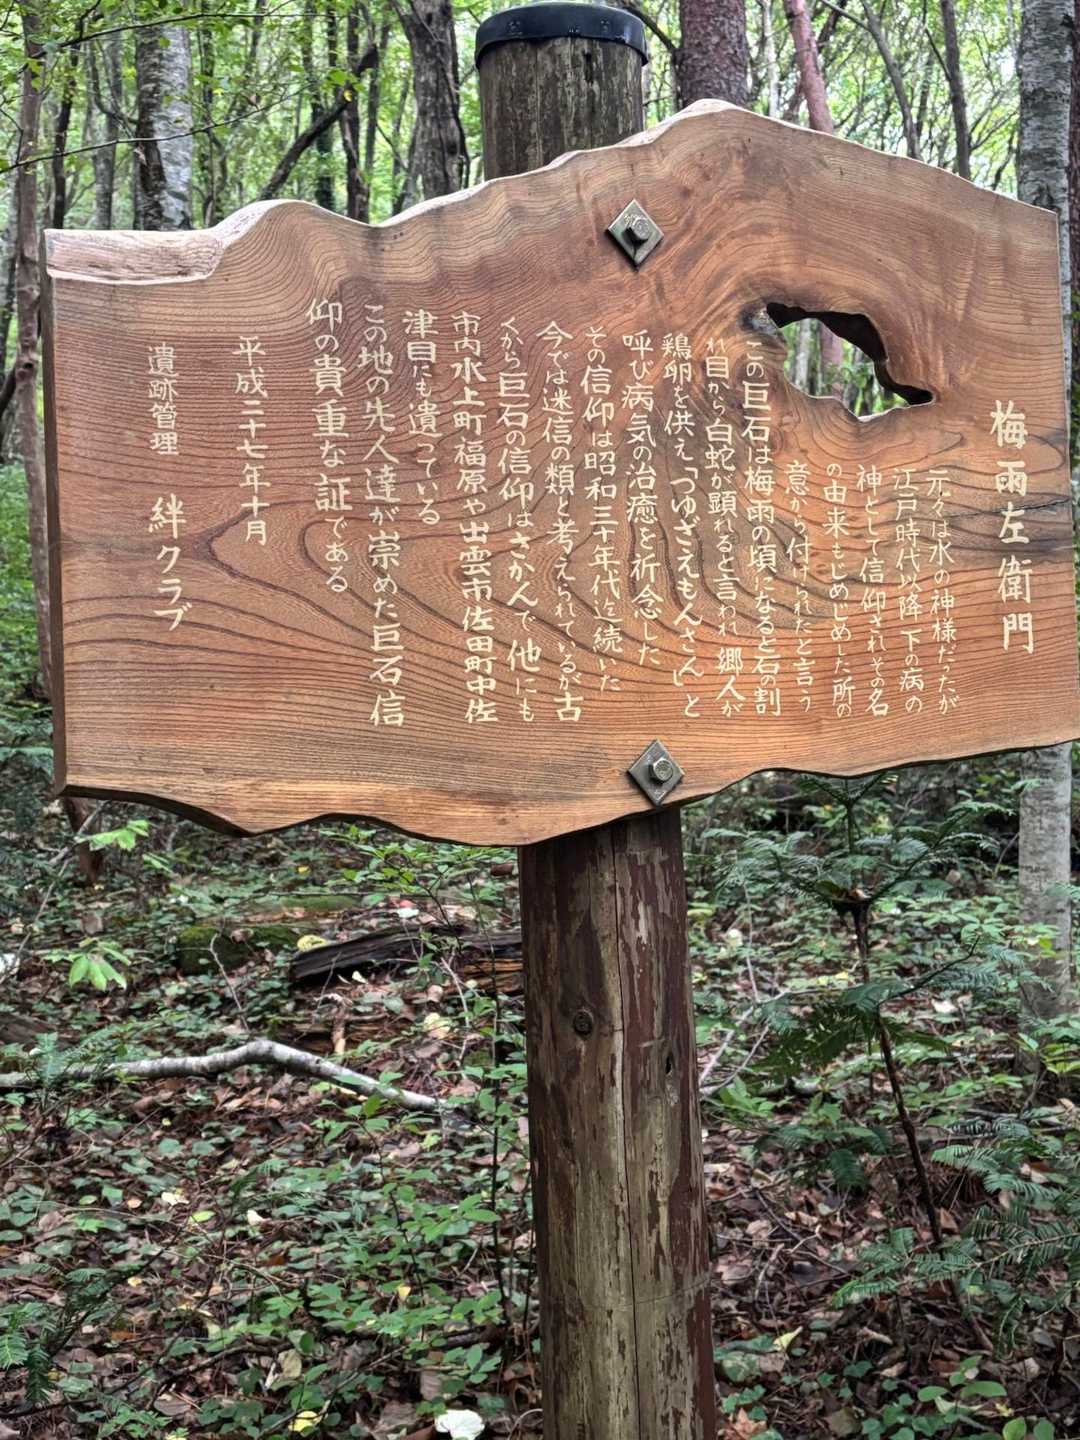 梅雨左衛門
元々は水の神様だったが
江戸時代以降下の病の
神として信仰されその名
の由来もじめじめした所の
意から付けられたと言う
この巨石は梅雨の頃になると石の割
れ目から白蛇が顕れると言われ郷人が
鶏卵を供え「つゆざえもんさん」と
呼び病気の治癒を祈念した
その信仰は昭和三十年代迄続いた
今では迷信の類と考えられているが古
くから巨石の信仰はさかんで他にも
市内水上町福原や出雲市佐田町中佐
津目にも遺っている
この地の先人達が崇めた巨石信
仰の貴重な証である
平成二十七年十月
遺跡管理 絆クラブ